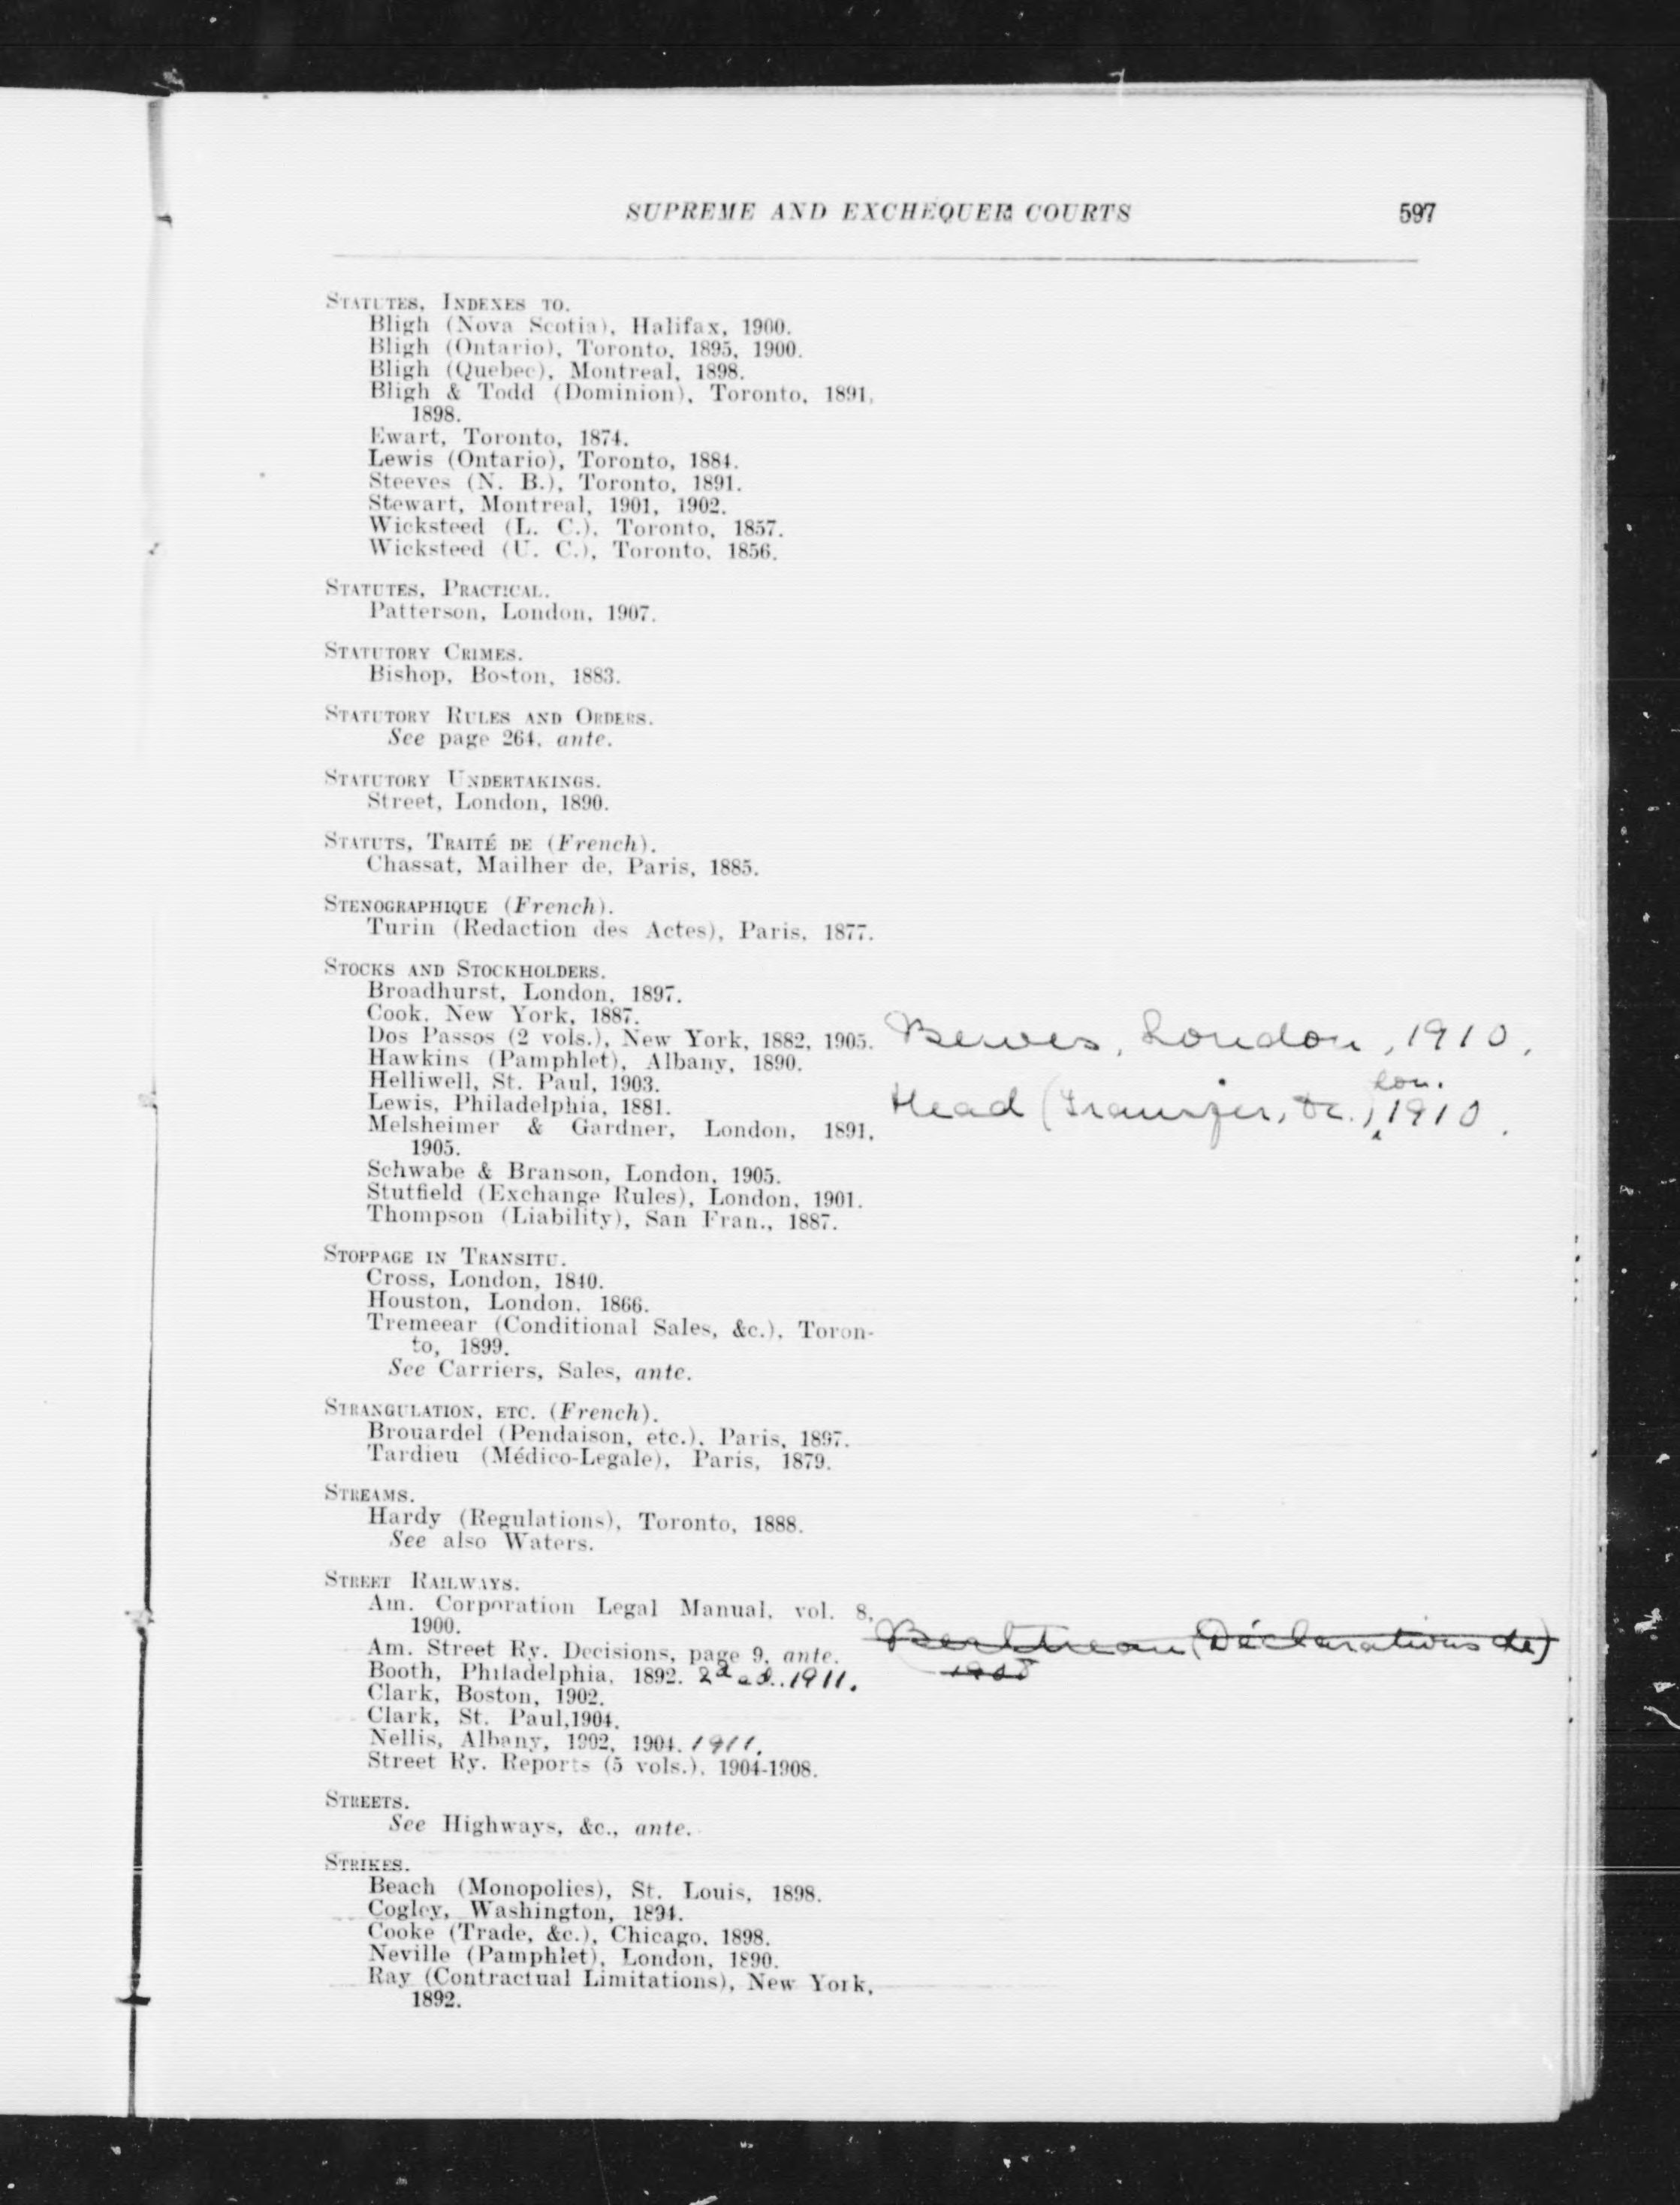 SUPREME AND EXCHEQUER COURTS 597
STATUTES, INDEXES TO.
Bligh (Nova Scotia), Halifax, 1900.
Bligh (Ontario), Toronto, 1895, 1900.
Bligh (Quebec), Montreal, 1898.
Bligh & Todd (Dominion), Toronto, 1891,
1898.
Ewart, Toronto, 1874.
Lewis (Ontario), Toronto, 1884.
Steeves (N. B.), Toronto, 1891.
Stewart, Montreal, 1901, 1902.
Wicksteed (L. C.), Toronto, 1857.
Wicksteed (U. C.), Toronto, 1856.
STATUTES, PRACTICAL.
Patterson, London, 1907.
STATUTORY CRIMES.
Bishop, Boston, 1883.
STATUTORY RULES AND ORDERS.
See page 264, ante.
STATUTORY UNDERTAKINGS.
Street, London, 1890.
STATUTS, TRAITÉ DE (French).
Chassat, Mailher de, Paris, 1885.
STENOGRAPHIQUE (French).
Turin (Redaction des Actes), Paris, 1877.
STOCKS AND STOCKHOLDERS.
Broadhurst, London, 1897.
Cook, New York, 1887.
Dos Passos (2 vols.), New York, 1882, 1905.
Hawkins (Pamphlet), Albany, 1890.
Helliwell, St. Paul, 1903.
Lewis, Philadelphia, 1881.
Melsheimer & Gardner, London, 1891,
1905.
Schwabe & Branson, London, 1905.
Stutfield (Exchange Rules), London, 1901.
Thompson (Liability), San Fran., 1887.
Bewes, London, 1910.
Head (Transfer, &c.), Lon. 1910.
STOPPAGE IN TRANSITU.
Cross, London, 1840.
Houston, London, 1866.
Tremeear (Conditional Sales, &c.), Toron-
to, 1899.
See Carriers, Sales, ante.
STRANGULATION, ETC. (French).
Brouardel (Pendaison, etc.), Paris, 1897.
Tardieu (Médico-Legale), Paris, 1879.
STREAMS.
Hardy (Regulations), Toronto, 1888.
See also Waters.
STREET RAILWAYS.
Am. Corporation Legal Manual, vol. 8,
1900.
Am. Street Ry. Decisions, page 9, ante.
Booth, Philadelphia, 1892. 2d ed. 1911.
Clark, Boston, 1902.
Clark, St. Paul,1904.
Nellis, Albany, 1902, 1904. 1911.
Street Ry. Reports (5 vols.), 1904-1908.
(Déclarations de)
STREETS.
See Highways, &c., ante.
STRIKES.
Beach (Monopolies), St. Louis, 1898.
Cogley, Washington, 1894.
Cooke (Trade, &c.), Chicago, 1898.
Neville (Pamphlet), London, 1890.
Ray (Contractual Limitations), New York,
1892.